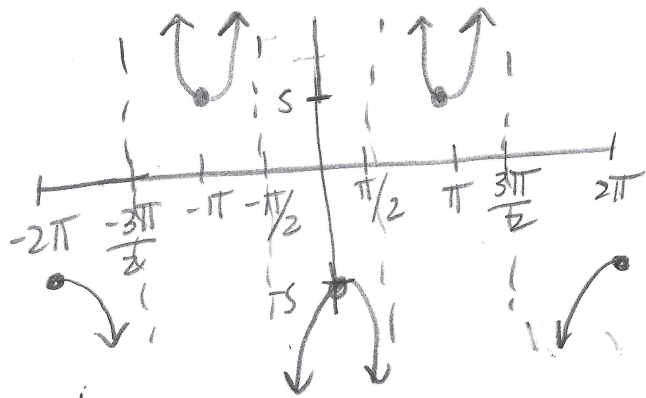 5
-2π -3π/2 -π -π/2 π/2 π 3π/2 2π
-5